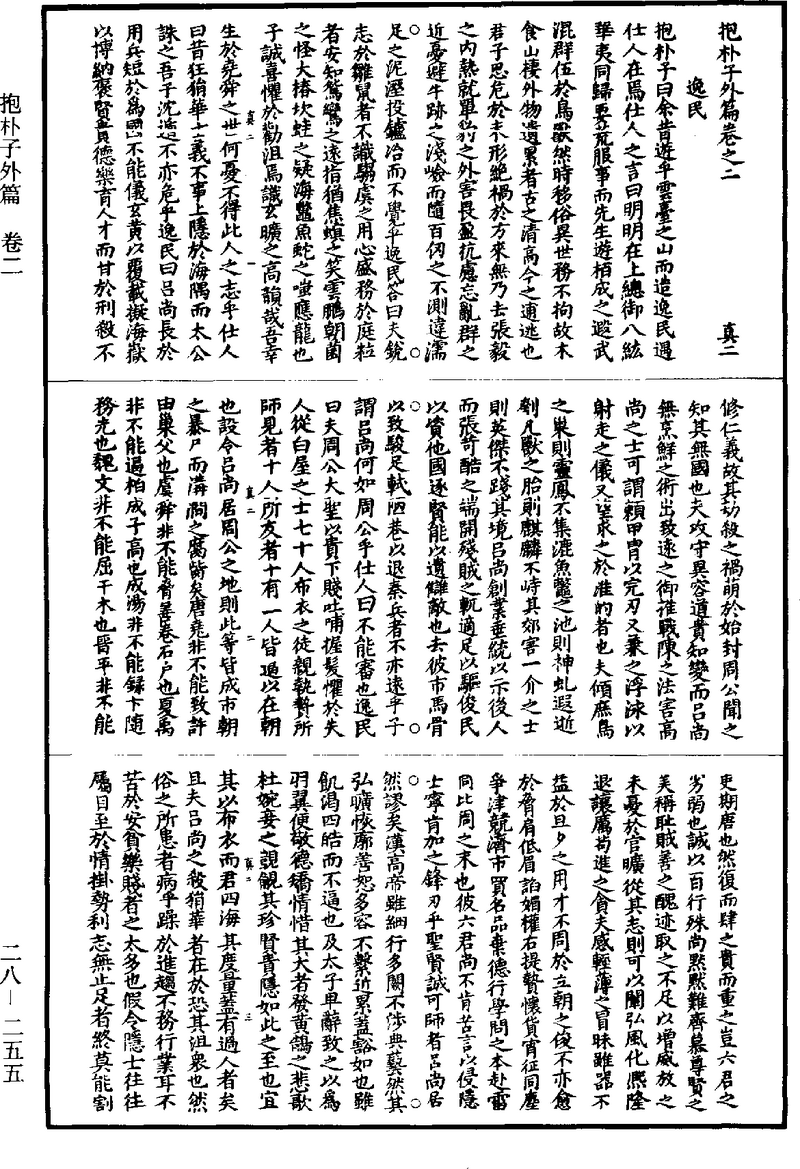 抱朴子外篇卷之二 真二
逸民
抱朴子曰余昔遊乎雲臺之山而造逸民遇
仕人在焉仕人之言曰明明在上總御八紘
華夷同歸要荒服事而先生遊栢成之遐武
混群伍於鳥獸然時移俗異世務不拘故木
食山棲外物遺累者古之清高今之逋逃也
君子思危於未形絕禍於方來無乃去張毅
之內熱就單豹之外害畏盈抗慮忘亂群之
近憂避牛跡之淺嶮而墮百仞之不測違濡
足之泥逕投鑪冶而不覺乎逸民答曰夫銳
志於雛鼠者不識騶虞之用心盛務於庭粒
者安知鴛鸞之遠指猶焦螟之笑雲鵬朝菌
之怪大椿坎蛙之疑海鼇魚虵之嗤應龍也
子誠喜懼於勸沮焉識玄曠之高韻哉吾幸
真二 一
生於堯舜之世何憂不得此人之志乎仕人
曰昔狂狷華士義不事上隱於海隅而太公
誅之吾子沈遁不亦危乎逸民曰呂尚長於
用兵短於為國不能儀玄黃以覆載擬海嶽
以博納褒賢貴德樂育人才而甘於刑殺不
修仁義故其劫殺之禍萌於始封周公聞之
知其無國也夫攻守異容道貴知變而呂尚
無烹鮮之術出致遠之御推戰陳之法害高
尚之士可謂賴甲冑以完刃又兼之浮泳以
射走之儀又望求之於准的者也夫傾庶鳥
之巢則靈鳳不集漉魚鼈之池則神虬遐逝
刳凡獸之胎則麒麟不峙其郊害一介之士
則英傑不踐其境呂尚創業垂統以示後人
而張苛酷之端開殘賊之軌適足以驅俊民
以資他國逐賢能以遺讎敵也去彼市馬骨
以致駿足軾陋巷以退秦兵者不亦遠乎子
謂呂尚何如周公乎仕人曰不能審也逸民
曰夫周公大聖以貴下賤吐哺握髮懼於失
人從白屋之士七十人布衣之徒親執贄所
師見者十人所友者十有一人皆逼以在朝
真二 二
也設令呂尚居周公之地則此等皆成市朝
之暴尸而溝澗之腐胔矣唐堯非不能致許
由巢父也虞舜非不能脅善卷石戶也夏禹
非不能逼栢成子高也成湯非不能錄卞隨
務光也魏文非不能屈干木也晉平非不能
吏期唐也然復而肆之貴而重之豈六君之
劣弱也誠以百行殊尚默默難齊慕尊賢之
美稱耻賊善之醜迹取之不足以增威放之
未憂於官曠從其志則可以闡弘風化熙隆
退讓厲苟進之貪夫感輕薄之冒昧雖器不
益於旦夕之用才不周於立朝之俊不亦愈
於脅肩低眉諂媚權右提贄懷貨宵征同塵
爭津競濟市買名品棄德行學問之本赴雷
同比周之末也彼六君尚不肯苦言以侵隱
士寧肯加之鋒刃乎聖賢誠可師者呂尚居
然謬矣漢高帝雖細行多闕不涉典藝然其
弘曠恢廓善恕多容不繫近累蓋豁如也雖
飢渴四皓而不逼也及太子卑辭致之以為
羽翼便敬德矯情惜其大者發黃鵠之悲歌
杜婉妾之覬覦其珍賢貴隱如此之至也宜
其以布衣而君四海其度量蓋有過人者矣
真二 三
且夫呂尚之殺狷華者在於恐其沮衆也然
俗之所患者病乎躁於進趨不務行業耳不
苦於安貧樂賤者之太多也假令隱士往往
屬目至於情掛勢利志無止足者終莫能割
抱朴子外篇 卷二
二八—二五五